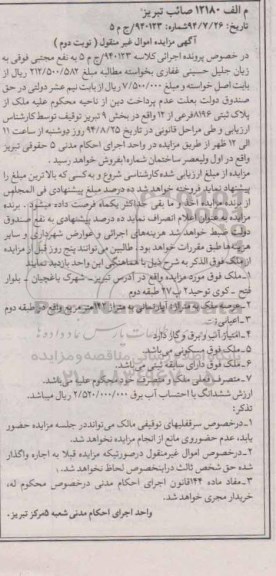 م الف ۱۲۱۸۰ صائب تبریز
تاریخ: ۹۴/۷/۲۶ شماره: ۹۴۰۱۲۳/ج م ۵
آگهی مزایده اموال غیر منقول ( نوبت دوم )
در خصوص پرونده اجرائی کلاسه ۹۴۰۱۲۳/ج م ۵ به نفع مجتبی فوقی به
زیان جلیل حسینی غفاری بخواسته مطالبه مبلغ ۲۱۲/۵۰۰/۵۸۲ ریال از
بابت اصل خواسته و مبلغ ۷/۵۰۰/۰۰۰ ریال از بابت نیم عشر دولتی در حق
صندوق دولت بعلت عدم پرداخت دین از ناحیه محکوم علیه ملک از
پلاک ثبتی ۸۱۹۶ فرعی از ۱۲ واقع در بخش ۹ تبریز توقیف توسط کارشناس
ارزیابی و طی مراحل قانونی در تاریخ ۹۴/۸/۲۵ روز دوشنبه از ساعت ۱۱
الی ۱۲ ظهر از طریق مزایده در واحد اجرای احکام مدنی ۵ حقوقی تبریز
واقع در اول ولیعصر ساختمان شماره ۱ بفروش خواهد رسید .
مزایده از مبلغ ارزیابی شده کارشناسی شروع و به کسی که بالاترین مبلغ را
پیشنهاد نماید فروخته خواهد شد ده درصد مبلغ پیشنهادی فی المجلس
از برنده مزایده اخذ و ما بقی حداکثر یکماه فرصت داده میشود . برنده
مزایده به عنوان اعلام انصراف نماید ده درصد پیشنهادی به نفع صندوق
دولت ضبط خواهد شد هزینه‌های اجرائی و عوارض شهرداری و سایر
هزینه‌ها طبق مقررات خواهد بود. طالبین می‌توانند پنج روز قبل از مزایده
از ملک فوق الذکر به شرح ذیل با هماهنگی این واحد بازدید نمایند
۱-ملک فوق مورد مزایده واقع در آدرس تبریز- شهرک باغچبان - بلوار
فتح - کوی توحید۲ پ ۲۷ طبقه دوم
۲-عرصه ملک به متراژ آپارتمانی به متراژ ۱۹۲ متر مربع واقع در طبقه دوم
۳-اعیانی:
۴-امتیاز آب و برق و گاز دارد
۵-ملک فوق مسکونی می‌باشد.
۶-ملک فوق دارای سابقه ثبتی می‌باشد.
۷-متصرف فعلی ملک در متصرف خود محکوم علیه می‌باشد.
ارزش ششدانگ با احتساب آب برق ۲/۵۲۰/۰۰۰/۰۰۰ ریال میباشد.
تذکر:
۱-درخصوص سرقفلیهای توقیفی مالک می‌تواند در جلسه مزایده حضور
یابد، عدم حضور وی مانع از انجام مزایده نخواهد شد.
۲-درخصوص اموال غیرمنقول درصورتیکه مزایده قبلا به اجاره واگذار
شده حق شخص ثالث دراینخصوص لحاظ نخواهد شد.
۳-مفاد ماده ۱۴۴ قانون اجرای احکام مدنی درخصوص محکوم له،
خریدار مجری خواهد شد.
واحد اجرای احکام مدنی شعبه ۵ مرکز تبریز.